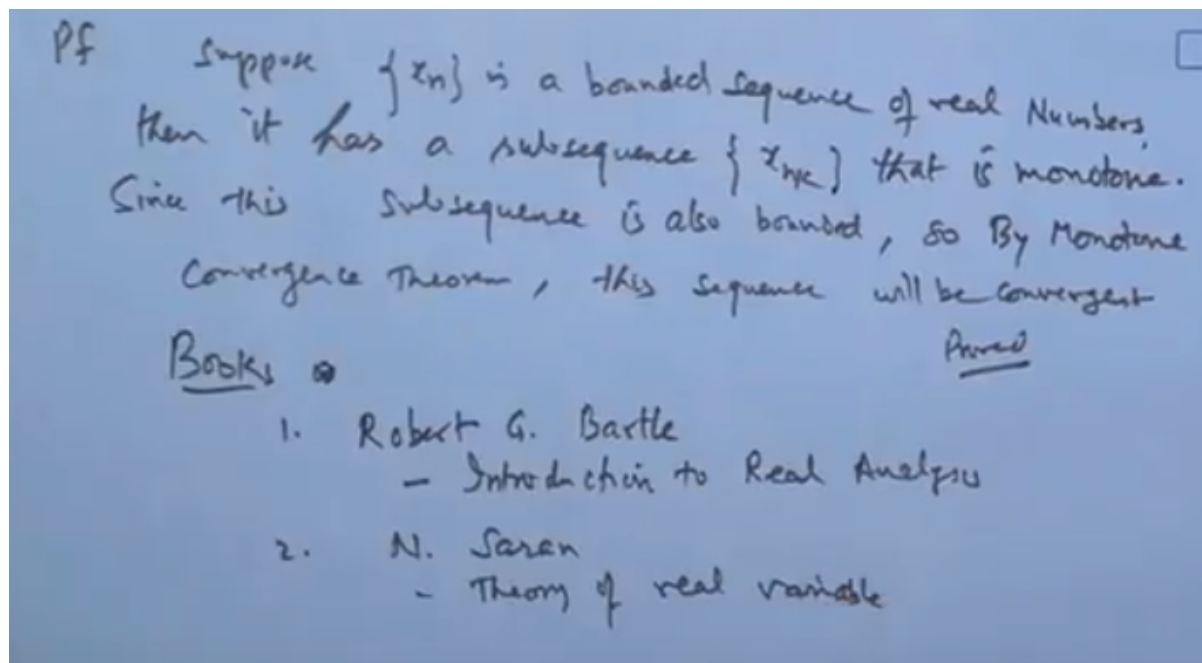 Pf Suppose {xn} is a bounded sequence of real Numbers,
then it has a subsequence {xnk} that is monotone.
Since this subsequence is also bounded, so By Monotone
Convergence Theorem, this sequence will be convergent
Proved
Books
1. Robert G. Bartle
- Introduction to Real Analysis
2. N. Saran
- Theory of real variable